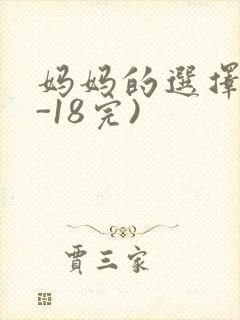 妈妈的選擇
-18完)
賈三家